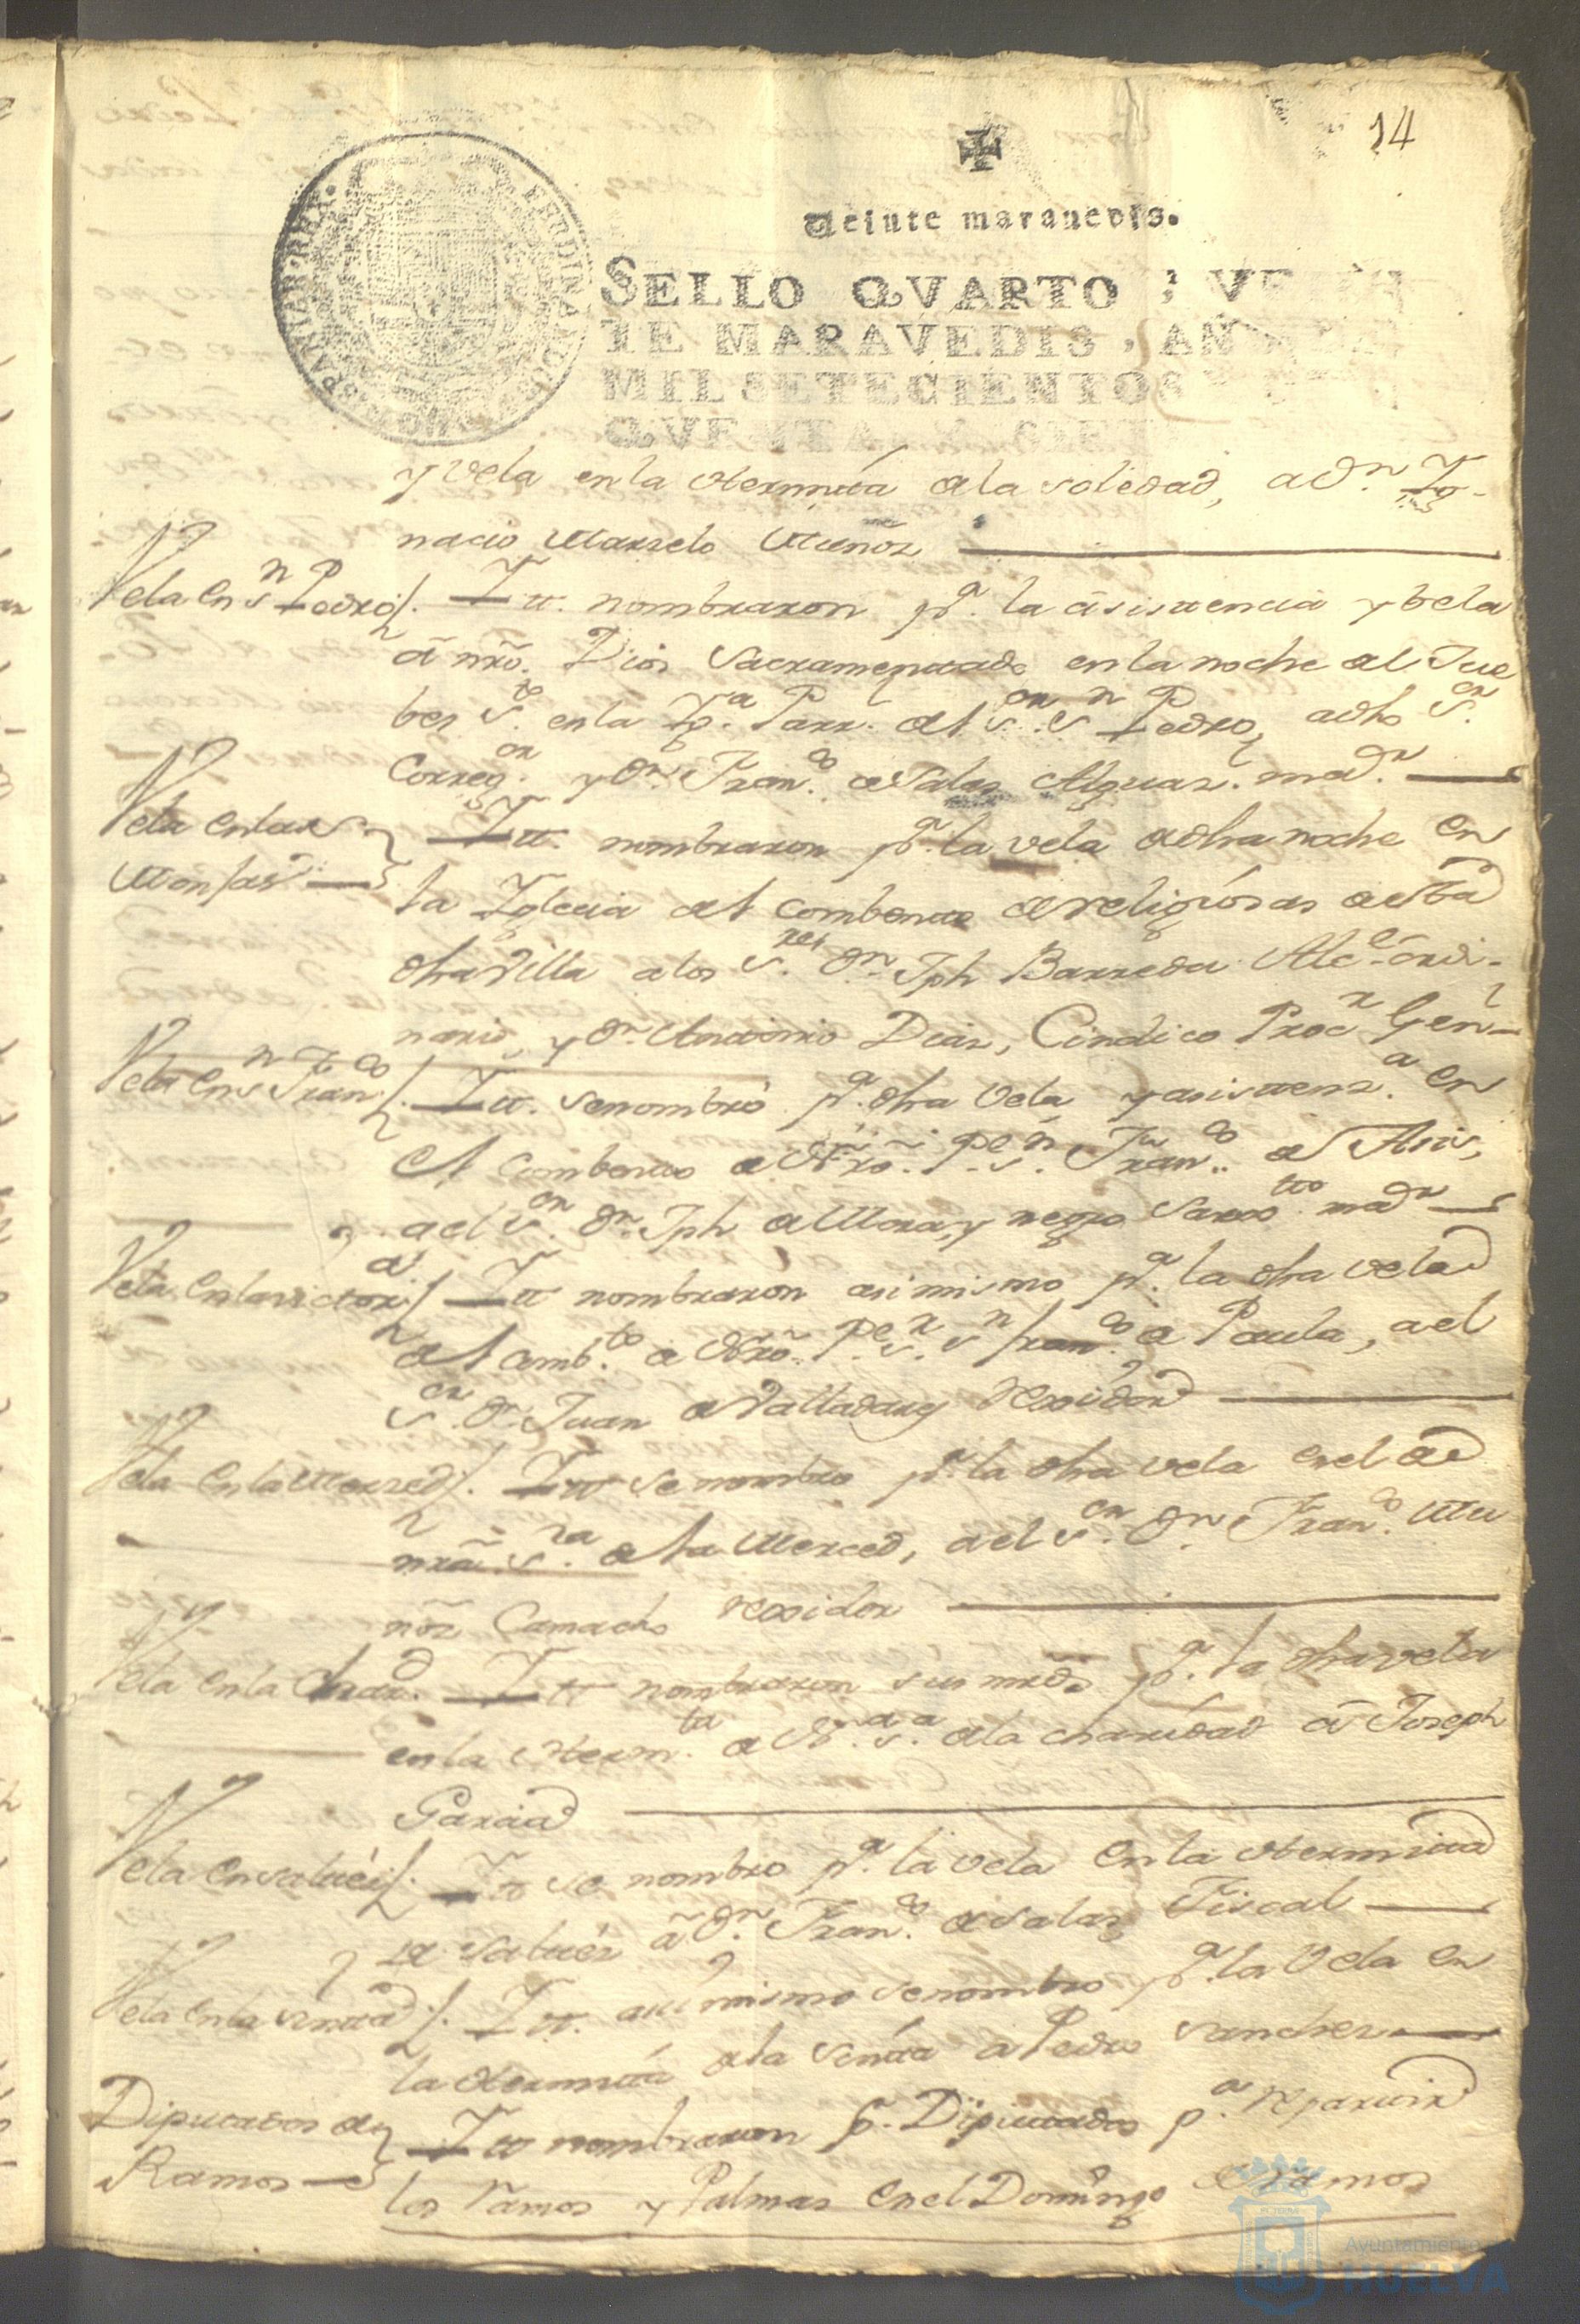 14
Veinte maravedis.
SELLO QVARTO, VEIN
TE MARAVEDIS, AÑO DE
MIL SETECIENTOS Y
QVENTA Y SIETE
FERDINANDUS
HISPANIAR. REX.
y vela en la Hermita de la Soledad, a Dn. Ig-
nacio Marzelo Muñoz
Vela en Sn Pedro
Itt. nombraron pa. la asistencia y bela
a nro. Dios Sacramentado en la noche del Jue
bes Sto. en la Iga. Parr. del Sor. Sn Pedro, a dho Sor.
Corregor. y Dn. Franco. de Salas Alguaz. mor.
Vela en las
Monjas
Itt. nombraron pa. la vela de dha noche en
la Iglecia del combento de religiosas de esta
dha Villa a los Sres. Dn. Jph Barreda Alce. ordi-
nario, y Dn. Antonio Diaz, Cindico Procr Genl
Vela en Sn Franco
Itt. se nombró pa. dha vela y asistenza. en
el combento de Nro. Pe. Sn. Franco. de Asis,
a el Sor. Dn. Jph de Mora, y negro Sarxto. mor
Vela en la victoria
Itt nombraron asimismo pa. la dha vela
del combto. de Nro. Pe. Sr. Sn Franco. de Paula, a el
Sor. Dn. Juan de Valladares Rexidor
Vela en la Merzed
Itt se nombro pa. la dha vela en el de
nra. Sra. de la Merced, a el Sor. Dn. Franco. Mu
ñoz Camacho Rexidor
Vela en la Chard.
Itt nombraron sus mrds. pa. la dha vela
en la Hermta. de Na. Sa. de la charidad a Joseph
Garcia
Vela en saluei
Itt se nombro pa. la vela en la Hermita
de saluei a Dn. Franco. de Salas, Fiscal
Vela en la sinta
Itt. asi mismo se nombro pa. la Vela en
la Hermita de la Sinta a Pedro Sanches
Diputados de
Ramos
Itt nombraron pr. Diputados pa. Repartir
los Ramos y Palmas en el Domingo de Ramos
Ayuntamiento
HUELVA